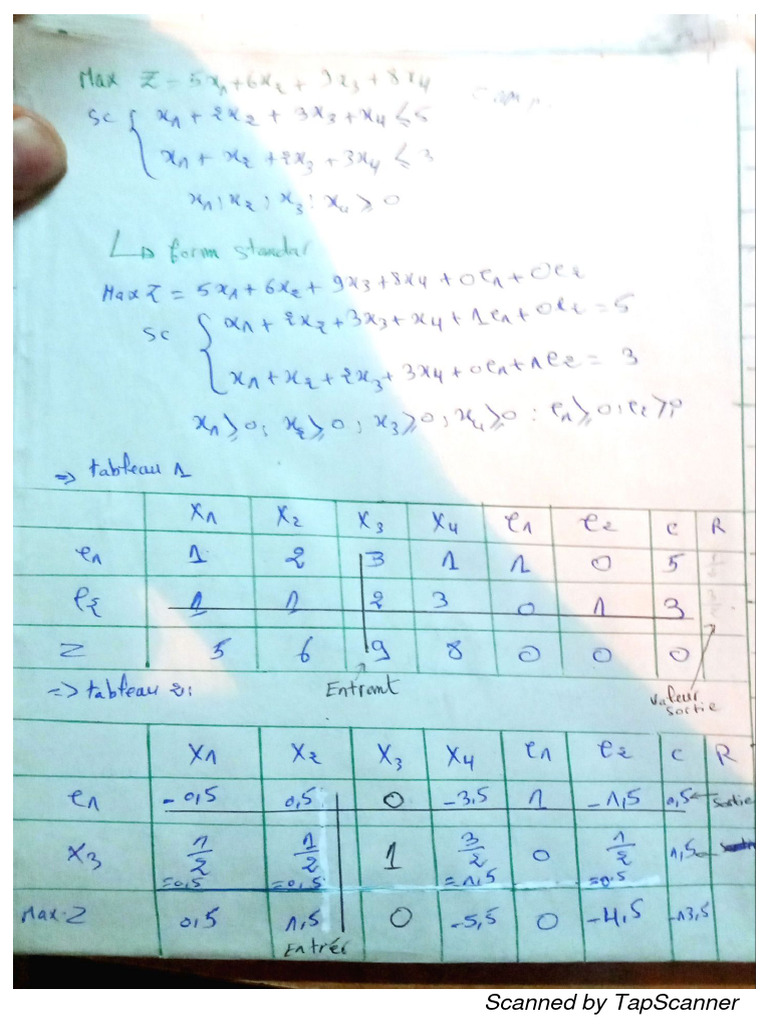 Max Z = 5x1 + 6x2 + 9x3 + 8x4
SC { x1 + 2x2 + 3x3 + x4 ≤ 5
x1 + x2 + 2x3 + 3x4 ≤ 3
x1 ; x2 ; x3 ; x4 ≥ 0
↳ form standar
Max Z = 5x1 + 6x2 + 9x3 + 8x4 + 0e1 + 0e2
SC { x1 + 2x2 + 3x3 + x4 + 1e1 + 0e2 = 5
x1 + x2 + 2x3 + 3x4 + 0e1 + 1e2 = 3
x1 ≥ 0 ; x2 ≥ 0 ; x3 ≥ 0 ; x4 ≥ 0 ; e1 ≥ 0 ; e2 ≥ 0
=> tableau 1
X1 X2 X3 X4 e1 e2 C R
e1 1 2 3 1 1 0 5
e2 1 1 2 3 0 1 3
Z 5 6 9 8 0 0 0
=> tableau 2: Entrant Valeur
Sortie
X1 X2 X3 X4 e1 e2 C R
e1 -0,5 0,5 0 -3,5 1 -1,5 0,5 ← Sortie
X3 1/2 1/2 1 3/2 0 1/2 1,5 ←
=0,5 =0,5 =1,5 =0,5
Max Z 0,5 1,5 0 -5,5 0 -4,5 -13,5
Entrée
Scanned by TapScanner